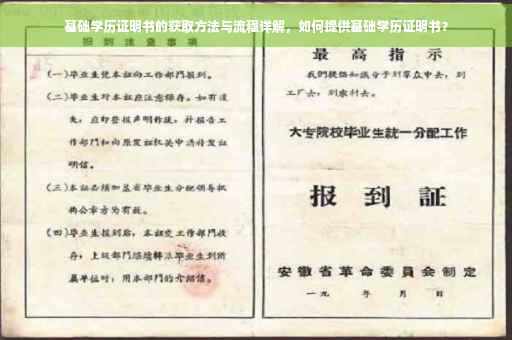 基础学历证明书的获取方法与流程详解，如何提供基础学历证明书？
报到注意事项
(一)毕业生凭本证向工作部门报到。
(二)毕业生对本证应注意保存。如有遗
失，应即登报声明作废，并报告工
作部门和向原发证机关申请补发证
明信。
(三)本证必须加盖省毕业生分配领导机
构公章方为有效。
(四)毕业生报到后，本证交工作部门收
存；上级部门继续转派毕业生到所
属单位时，用本部门的介绍信。
最高指示
我们提倡知识分子到群众中去，到
工厂去，到农村去。
大专院校毕业生统一分配工作
报到証
安徽省革命委員会制定
一九 年 月 日